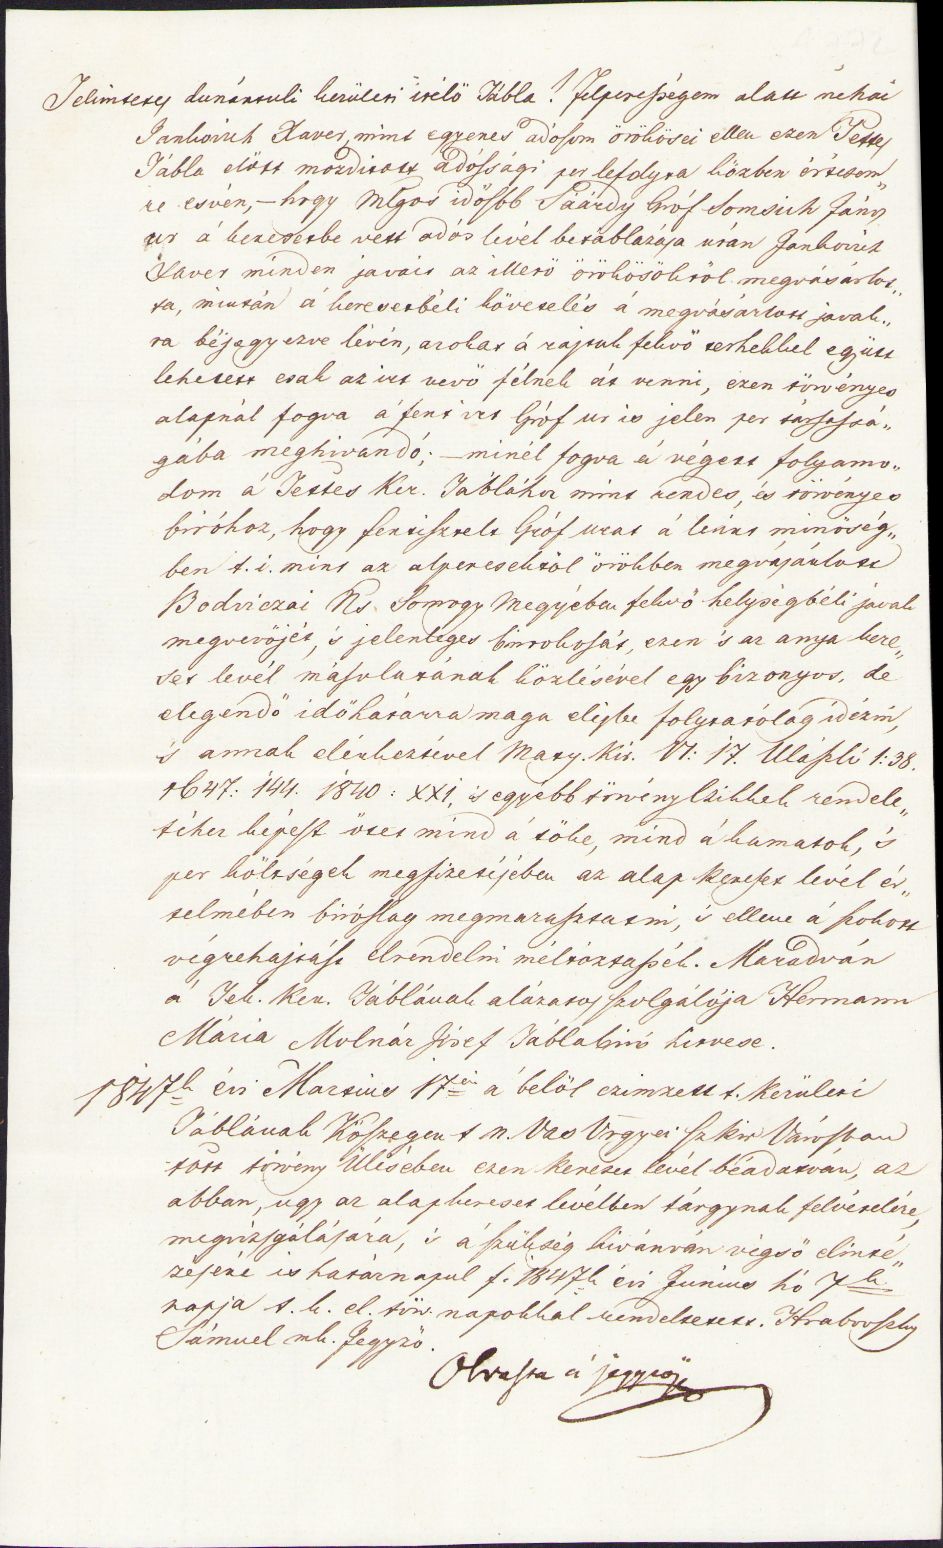 Tekintetes dunántuli kerületi itélő Tábla! Felperességem alatt néhai
Jankovich Xaver, mint egyenes adósom örökösei ellen ezen Tettes
Tábla előtt mozditott adóssági per lefolyta közben értésem„
re esvén, – hogy Mlgos idősbb Sáárdy Gróf Somsich János
ur á keresetbe vett adós levél betáblázása után Jankovich
Xaver minden javait az illető örökösöktöl megvásárlot„
ta, miután á keresetbéli követelés á megvásárlott javak„
ra béjegyezve lévén, azokat á rajtuk fekvő terhekkel együtt
lehetett csak az irt vevő félnek át venni, ezen törvényes
alapnál fogva á fent irt Gróf ur is jelen per társaságá„
gába meghivandó; – minél fogva á végett folyamo„
dom á Tettes Ker. Táblához mint rendes, és törvényes
biróhoz, hogy fentisztelt Gróf urat á leirt minőség„
ben t. i. mint az alperesektöl örökben megvásárlott
Bodviczai Ns Somogy Megyében fekvő helységbéli javak
megvevőjét, 's jelenleges birtokosát, ezen 's az anya kere„
set levél másolatának közlésével egy bizonyos, de
elegendő időhatárra maga elejbe folytatólag idézni,
's annak elérkeztével Maty. Kir. VI: 17. Ulászli 1: 38.
1647: 144. 1840: XXI, 's egyébb törvény Czikkek rendele„
téhez képest őtet mind á tőke, mind á kamatok, 's
per költségek megfizetésében az alap kereset levél ér„
telmében biróilag megmarasztatni, 's ellene á szokott
végrehajtást elrendelni méltóztassék. Maradván
á Tek. Ker. Táblának alázatos szolgálója Hermann
Mária Molnár Jósef Táblabiró hitvese.
1847k évi Martius 17én á belöl czimzett t. kerületi
Táblának Kőszegen t. n. Vas Vrgyei sz kir Városban
tött törvény Ülésében ezen kereset levél béadatván, az
abban, ugy az alapkereset levélben tárgynak felvételére,
megvizsgálására, 's á szükség kivánván végső elinté„
zésére is határnapul f. 1847k évi Junius hó 7k
napja t. k. el. töv. napokkal rendeltetett. Hrabovszky
Sámuel mk. Jegyző.
Olvasta á jegyző